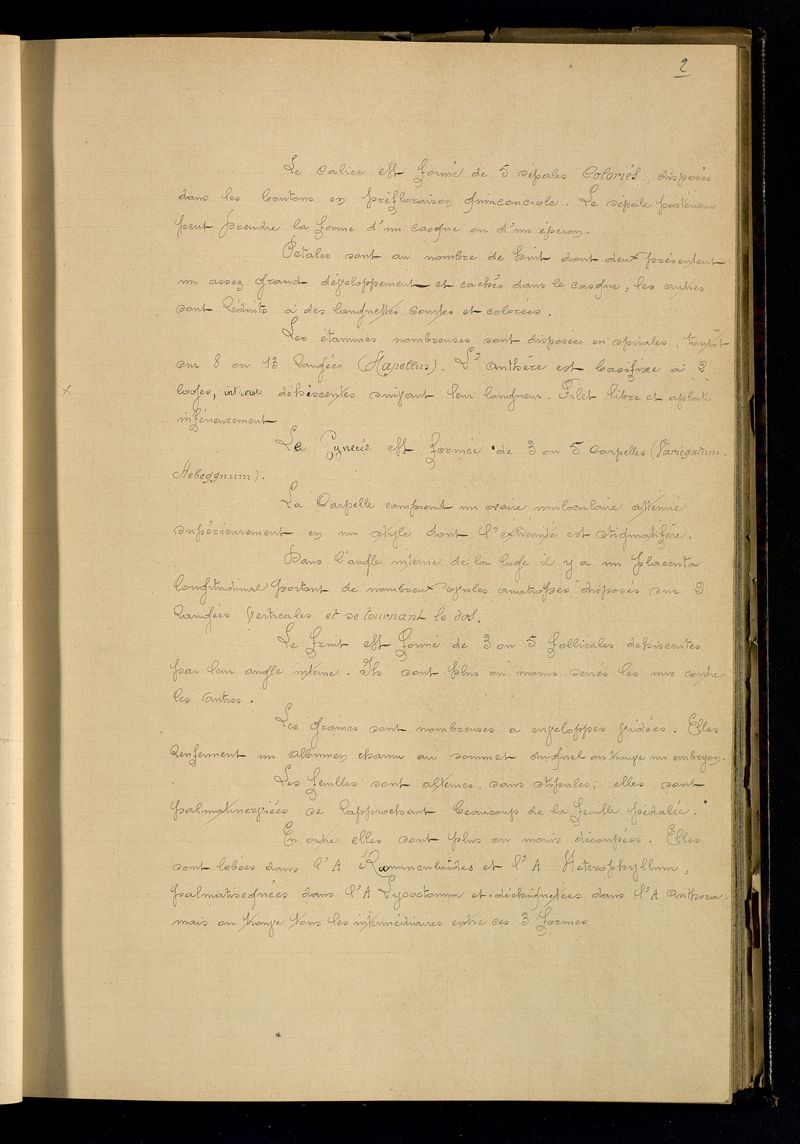 2
Le calice est formé de 5 sépales Coloriés, disposés
dans les boutons en préfloraison quinconciale. Le sépale postérieur
peut prendre la forme d'un casque ou d'un éperon.
Pétales sont au nombre de huit dont deux présentent
un assez grand développement et cachés dans le casque, les autres
sont Réduits à des languettes courtes et colorées.
Les étamines nombreuses sont disposées en spirales, tantôt
sur 8 ou 13 Rangées (Napellus). L'anthère est basifixe à 2
x loges, introrses déhiscentes suivant leur longueur. Filet libre et aplati
inférieurement
Le Gynécée est formée de 3 ou 5 Carpelles (Variegatum.
Hebegynum).
La Carpelle comprend un ovaire uniloculaire atténué
supérieurement en un style dont l'extrémité est stigmatifère.
Dans l'angle interne de la loge il y a un placenta
longitudinal portant de nombreux ovules anatropes disposés sur 2
Rangées Verticales et se tournant le dos.
Le fruit est formé de 3 ou 5 follicules déhiscentes
par leur angle interne. Ils sont plus ou moins serrés les uns contre
les autres.
Les graines sont nombreuses a enveloppes ridées. Elles
Renferment un albumen charnu au sommet duquel on trouve un embryon.
Les feuilles sont alternes, sans stipules; elles sont
palmatinerviées se Rapprochant beaucoup de la feuille pédalée.
En outre elles sont plus ou moins découpées. Elles
sont lobées dans l'A Ranunculoïdes et l'A Heterophyllum,
palmatiséquées dans l'A Lycoctonum et déchiquetées dans l'A Anthora.
mais on trouve tous les intermédiaires entre ces 3 formes